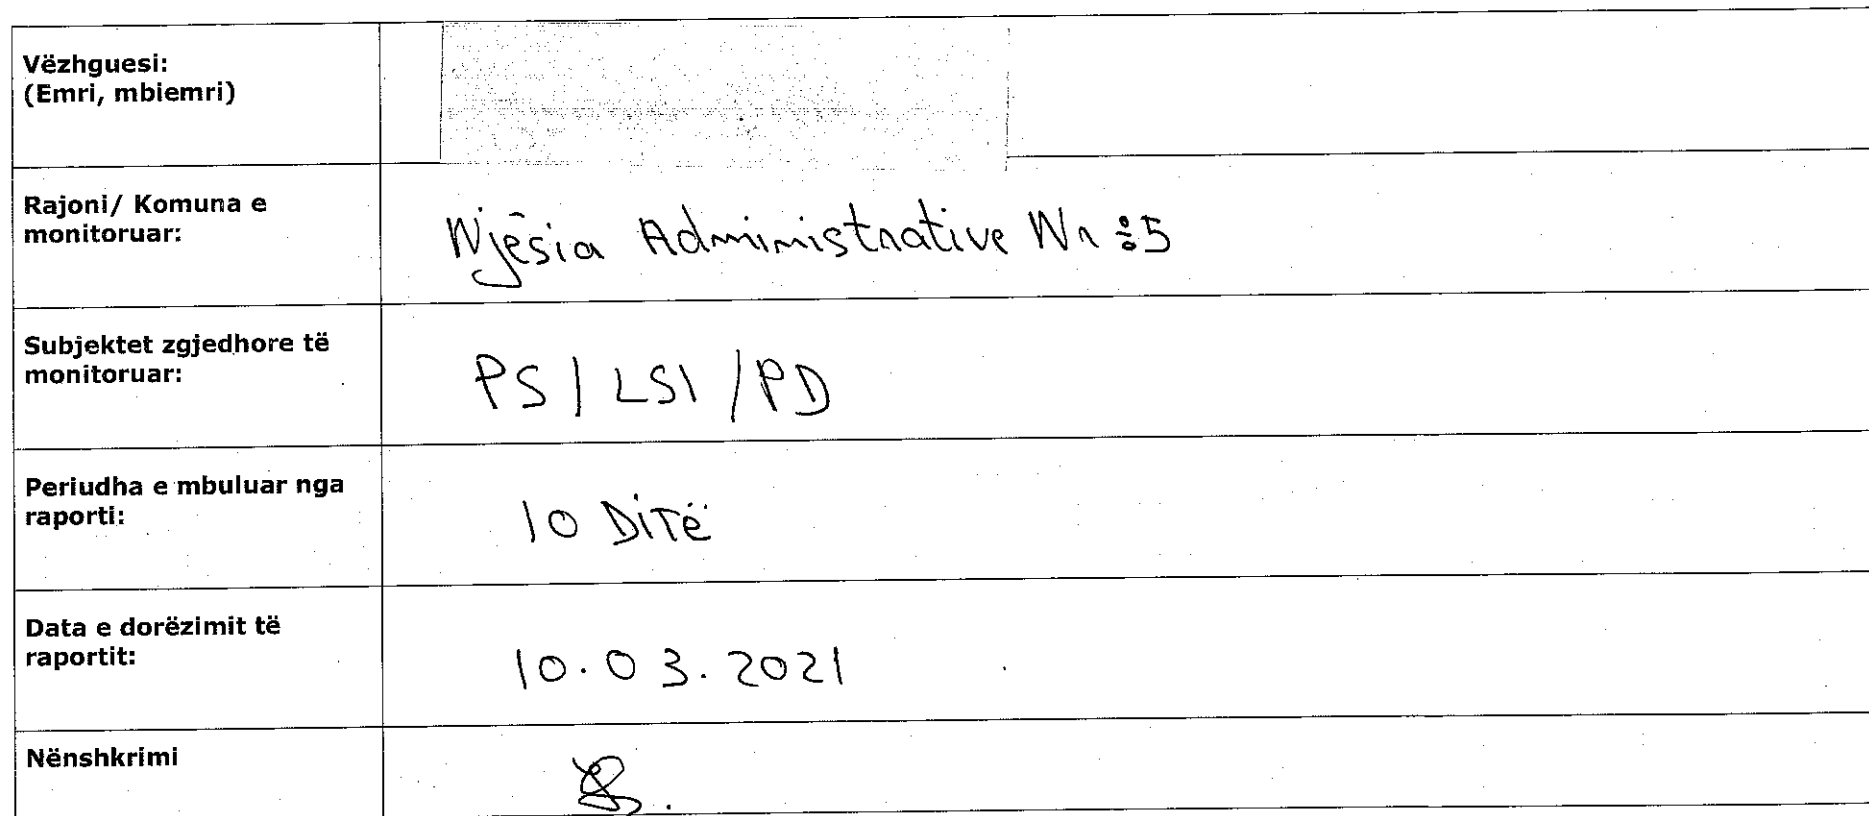 Vëzhguesi:
(Emri, mbiemri)
Rajoni/ Komuna e
monitoruar:
Njësia Administrative Nr:5
Subjektet zgjedhore të
monitoruar:
PS / LSI / PD
Periudha e mbuluar nga
raporti:
10 Ditë
Data e dorëzimit të
raportit:
10.03.2021
Nënshkrimi